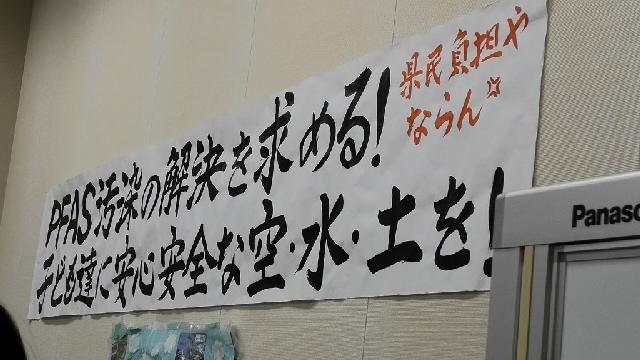 PFAS汚染の解決を求める!
県民負担や
ならん
子ども達に安心安全な空・水・土を!
Panaso